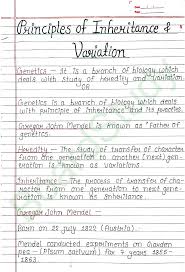 Principles of Inheritance &
Variation
Genetics - It is a branch of biology which
deals with study of heredity and variation.
OR
Genetics is a branch of biology which deals
with principle of inheritance and its process.
Gregor John Mendel is known as "Father of
genetics.
Heredity - The study of transfer of character
from one generation to another (next) gene-
ration is known as variations.
Inheritance - The process of transfer of cha-
racter from one generation to next gene-
ration is known as Inheritance.
Gregor John Mendel -
Born on 22 July 1822 (Austria).
Mendel conducted experiments on Garden
pea - (Pisum sativum) for 7 years 1856-
1863.